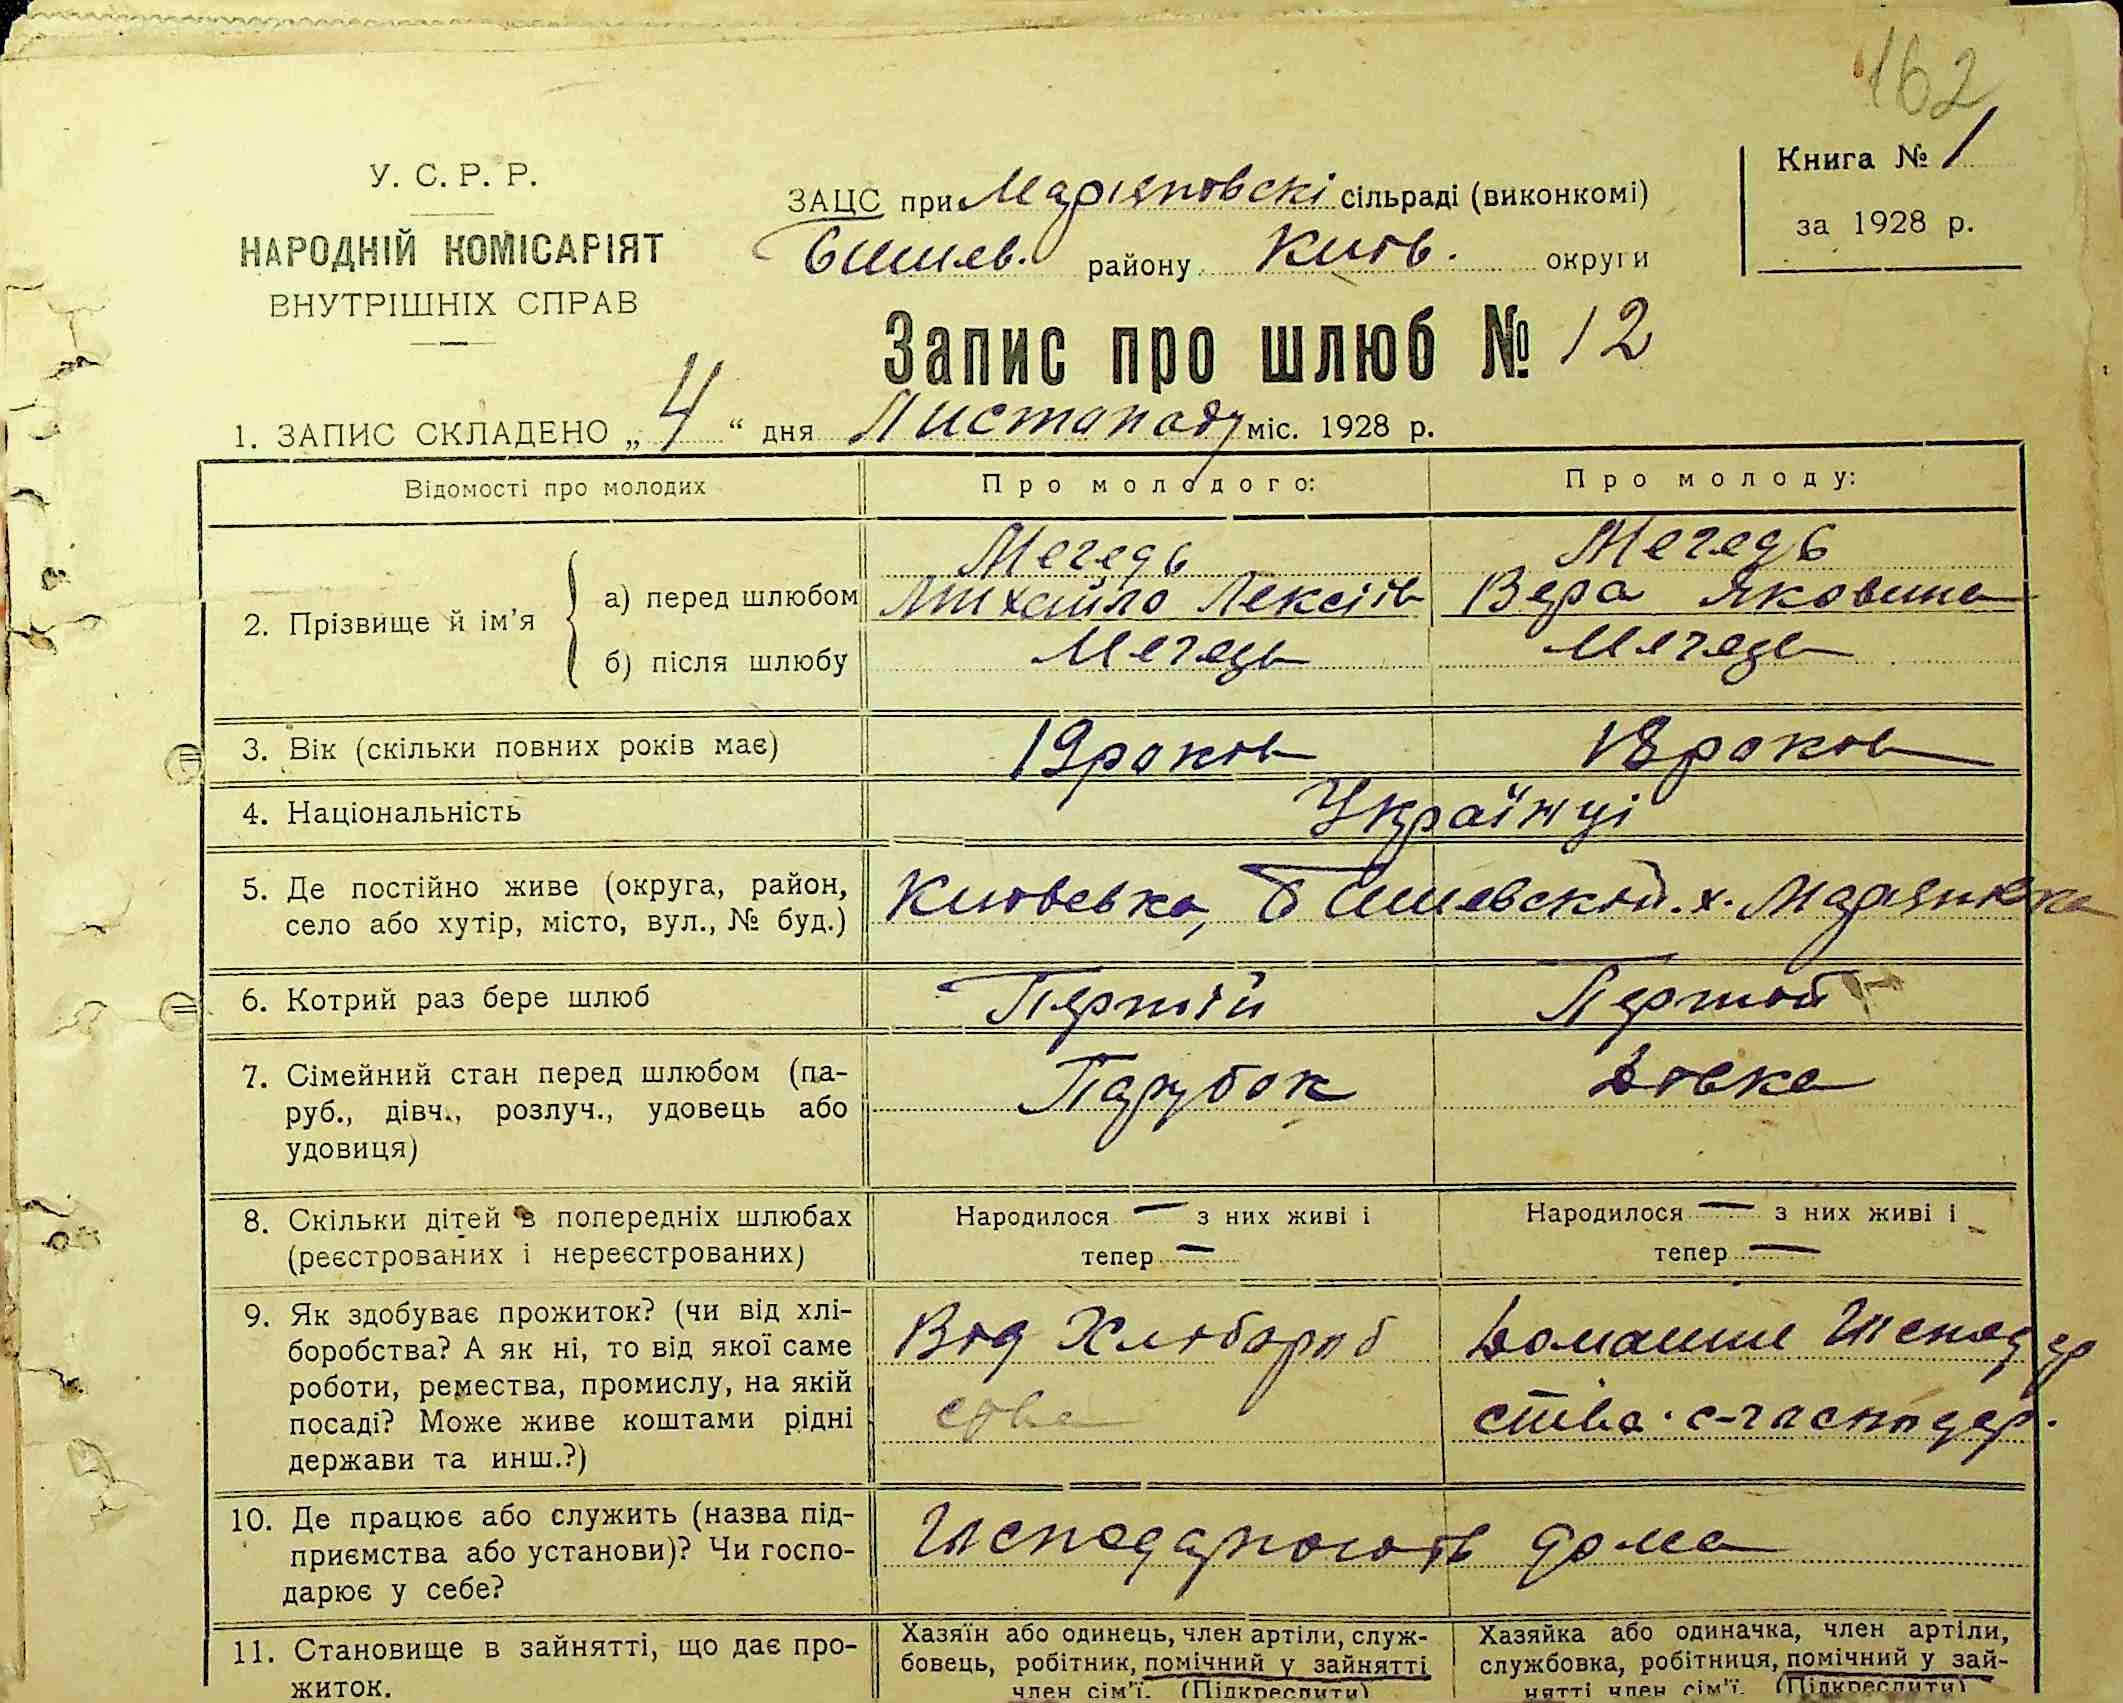 162
У. С. Р. Р.
НАРОДНІЙ КОМІСАРІЯТ
ВНУТРІШНІХ СПРАВ
ЗАЦС при Мар'яновскі сільраді (виконкомі)
Бишів. району Київ. округи
Книга № 1
за 1928 р.
Запис про шлюб № 12
1. ЗАПИС СКЛАДЕНО „4“ дня Листопаду міс. 1928 р.
Відомості про молодих
Про молодого:
Про молоду:
2. Прізвище й ім'я
а) перед шлюбом
Мегедь
Михайло Лексіів
Мегедь
Вера Яковина
б) після шлюбу
Мегедь
Мегедь
3. Вік (скільки повних років має)
19 роков
18 роков
4. Національність
Українці
5. Де постійно живе (округа, район,
село або хутір, місто, вул., № буд.)
Киівська, Бишевский. х. Мар'янівка
6. Котрий раз бере шлюб
Першій
Першой
7. Сімейний стан перед шлюбом (па-
руб., дівч., розлуч., удовець або
удовиця)
Парубок
Дівка
8. Скільки дітей в попередніх шлюбах
(реєстрованих і нереєстрованих)
Народилося — з них живі і
тепер —
Народилося — з них живі і
тепер —
9. Як здобуває прожиток? (чи від хлі-
боробства? А як ні, то від якої саме
роботи, ремества, промислу, на якій
посаді? Може живе коштами рідні
держави та инш.?)
Від Хлібороб
ства
Домашне Господар
ства. с-господар.
10. Де працює або служить (назва під-
приємства або установи)? Чи госпо-
дарює у себе?
Господарюють дома
11. Становище в зайнятті, що дає про-
житок.
Хазяїн або одинець, член артіли, служ-
бовець, робітник, помічний у зайнятті
член сім'ї. (Підкреслити)
Хазяйка або одиначка, член артіли,
службовка, робітниця, помічний у зай-
нятті член сім'ї. (Підкреслити)